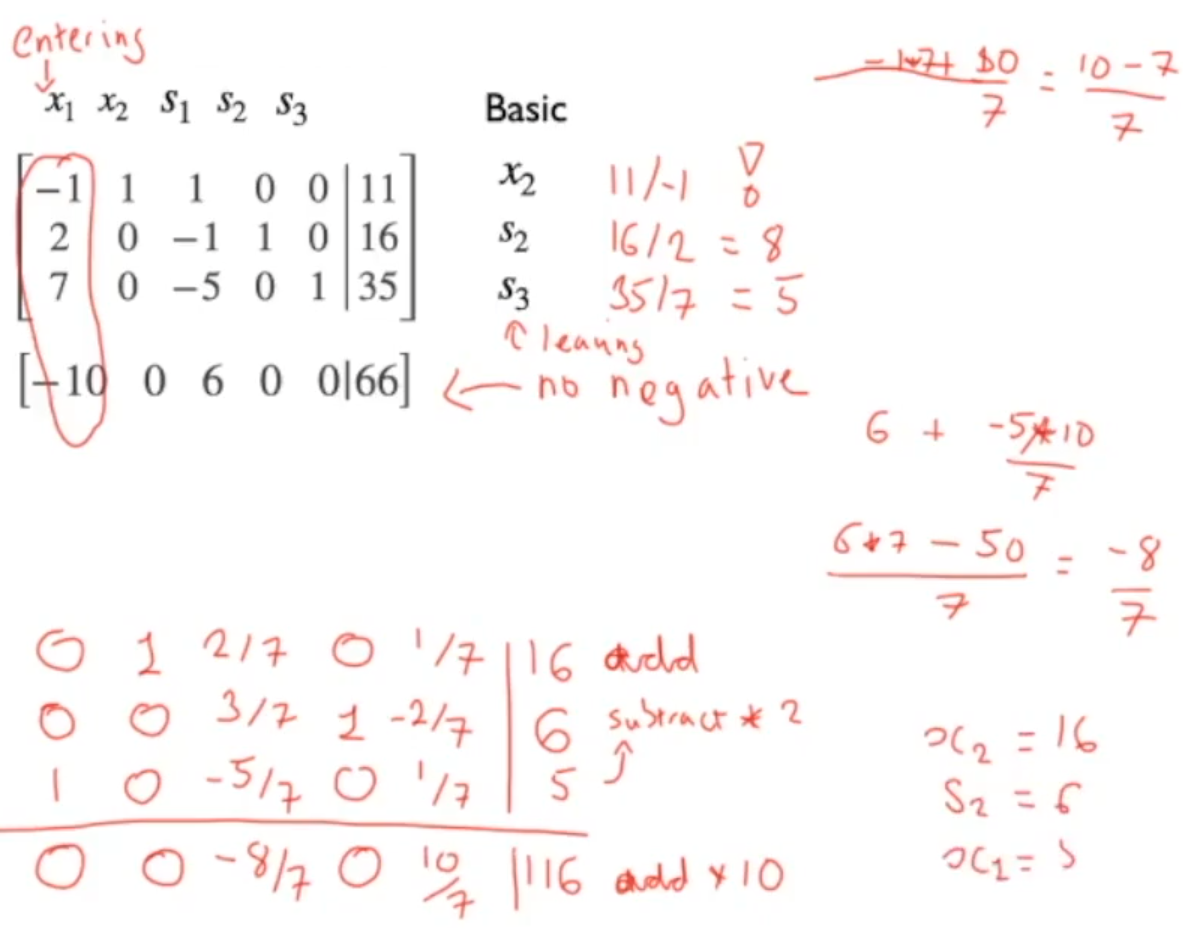 entering
x₁ x₂ s₁ s₂ s₃ Basic
−1 1 1 0 0 | 11 x₂ 11/-1 !
2 0 −1 1 0 | 16 s₂ 16/2 = 8
7 0 −5 0 1 | 35 s₃ 35/7 = 5
↑ leaving
[−10 0 6 0 0|66] ← no negative
10/7 = (10 - 7)/7
6 + (-5*10)/7
(6*7 - 50)/7 = -8/7
0 1 2/7 0 1/7 | 16 add
0 0 3/7 1 -2/7 | 6 subtract * 2
1 0 -5/7 0 1/7 | 5
0 0 -8/7 0 10/7 | 116 add * 10
x₂ = 16
s₂ = 6
x₁ = 5